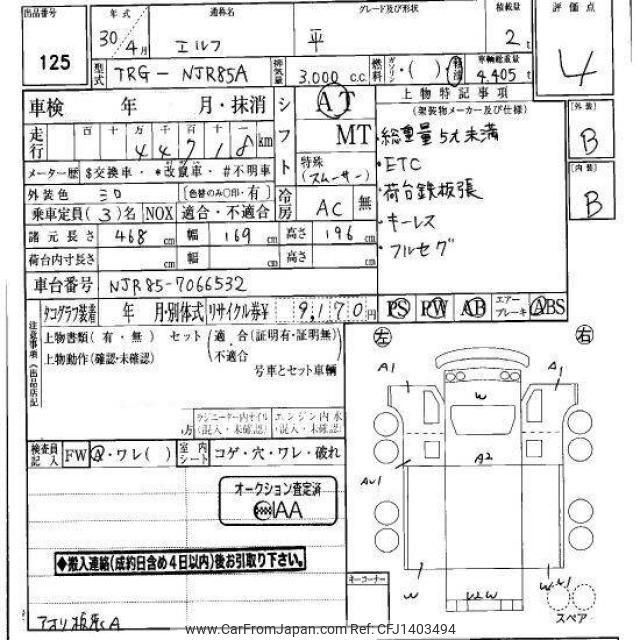 出品番号
125
年式
30 / 4月
通称名
エルフ
グレード及び形状
平
積載量
2 t
評価点
4
型式 TRG - NJR85A
排気量 3.000 c.c.
燃料 ガソリン・( ) 軽油
車輌総重量
4.405 t
車検 年 月・抹消
シフト
AT
MT
特殊
(スムーサー)
走行
百 十 万 千 百 十 一
4 4 7 1 8 km
メーター歴 $交換車・*改竄車・#不明車
外装色 シロ 〔色替のみ○印・有〕
冷房 AC 無
乗車定員 ( 3 ) 名 NOX 適合・不適合
諸元長さ 468 cm 幅 169 cm 高さ 196 cm
荷台内寸長さ cm 幅 cm 高さ cm
車台番号 NJR85-7066532
上物特記事項
(架装物メーカー及び仕様)
・総重量5t未満
・ETC
・荷台鉄板張
・キーレス
・フルセグ
[外装]
B
[内装]
B
タコグラフ装着 年 月・別体式
リサイクル券¥ 9,170円
PS PW AB エアーブレーキ ABS
注意事項
上物書類 (有・無) セット (適合 (証明有・証明無)
不適合
上物動作 (確認・未確認)
号車とセット車輌
ラジエーター内オイル (混入・未確認)
エンジン内水 (混入・未確認)
検査員記入 FW A・ワレ( )
室内シート コゲ・穴・ワレ・破れ
左
右
A1
A1
W
A2
AU1
W
W2W
W
W1
スペア
キーコーナー
オークション査定済
IAA
◆搬入連絡(成約日含め4日以内)後お引取り下さい。
www.CarFromJapan.com Ref: CFJ1403494